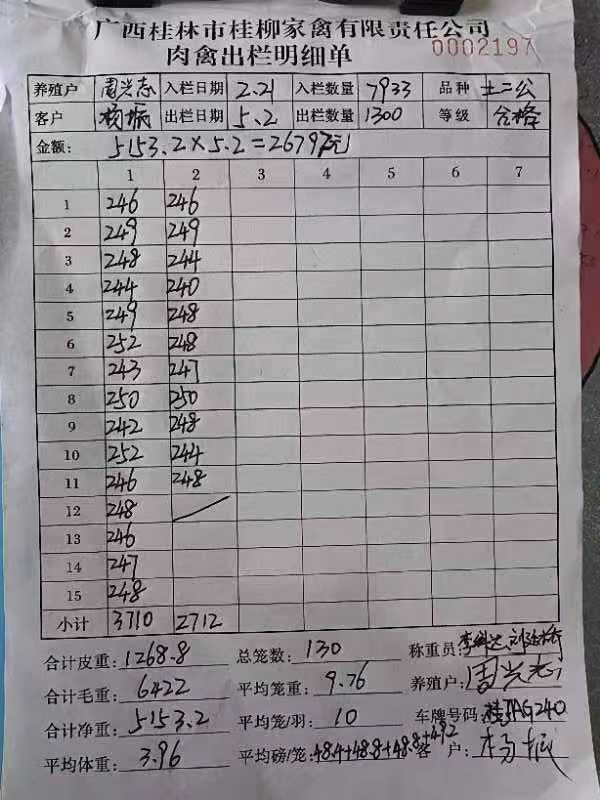 广西桂林市桂柳家禽有限责任公司
肉禽出栏明细单 0002197
养殖户 周兴志 入栏日期 2.21 入栏数量 7933 品种 土二公
客户 杨振 出栏日期 5.2 出栏数量 1300 等级 合格
金额: 5153.2×5.2=26797元
1 2 3 4 5 6 7
1 246 246
2 249 249
3 248 244
4 244 240
5 249 248
6 252 248
7 243 247
8 250 250
9 242 248
10 252 244
11 246 248
12 248
13 246
14 247
15 248
小计 3710 2712
合计皮重: 1268.8 总笼数: 130 称重员:
合计毛重: 6422 平均笼重: 9.76 养殖户: 周兴志
合计净重: 5153.2 平均笼/羽: 10 车牌号码:
平均体重: 3.96 平均磅/笼: 48.4+48.8+48.8+49.2 客户: 杨振